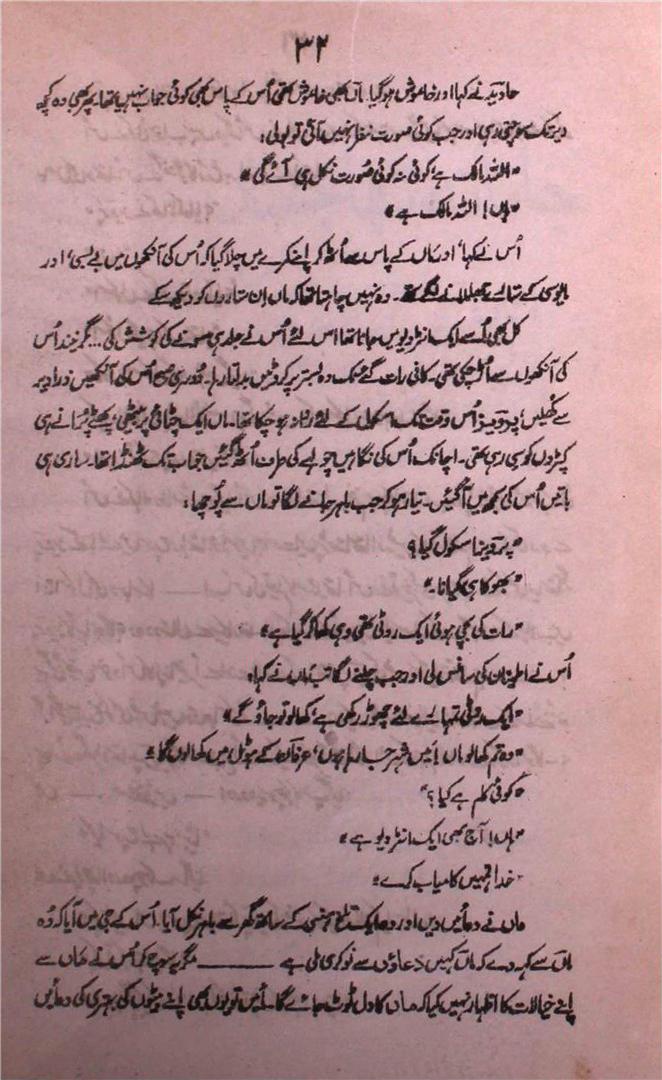 ۳۲
جاوید نے کہا اور خاموش ہو گیا۔ ماں بھی خاموش تھی اُس کے پاس بھی کوئی جواب نہیں تھا۔ پھر بھی وہ کچھ
دیر تک سوچتی رہی اور جب کوئی صورت نظر نہیں آئی تو بولی:
"اللہ مالک ہے، کوئی نہ کوئی صورت نکل ہی آئے گی"
"ہاں! اللہ مالک ہے"
اُس نے کہا، اور ماں کے پاس سے اُٹھ کر اپنے کمرے میں چلا گیا کہ اُس کی آنکھوں میں بے بسی، اور
مایوسی کے ستارے جھلملانے لگے تھے۔ وہ نہیں چاہتا تھا کہ ماں اِن ستاروں کو دیکھ سکے
کل بھی اُسے ایک انٹرویو میں جانا تھا اس لئے اُس نے جلد ہی سونے کی کوشش کی... مگر نیند اُس
کی آنکھوں سے اُڑ چکی تھی۔ کافی رات گئے تک وہ بستر پر کروٹیں بدلتا رہا۔ دُوسری صبح اُس کی آنکھیں ذرا دیر
سے کھُلیں، پرویز اُس وقت تک اسکول کے لئے روانہ ہو چکا تھا۔ ماں ایک چٹائی پر بیٹھی پھٹے پُرانے ہی
کپڑوں کو سی رہی تھی۔ اچانک اُس کی نگاہیں چولہے کی طرف اُٹھ گئیں جو اب تک ٹھنڈا تھا۔ ساری ہی
باتیں اُس کی سمجھ میں آ گئیں۔ تیار ہو کے جب باہر جانے لگا تو ماں سے پُوچھا:
"پرویز اسکول گیا؟
"بھوکا ہی گیا نا۔"
"رات کی بچی ہوئی ایک روٹی تھی وہی کھا کر گیا ہے"
اُس نے اطمینان کی سانس لی اور جب چلنے لگا تب ماں نے کہا:
"ایک روٹی تمہارے لئے چھوڑ رکھی ہے، کھا لو تو جاؤ گے"
"وہ تم کھا لو ماں! میں شہر جا رہا ہوں، عرفان کے ہوٹل میں کھا لوں گا"
"کوئی کام ہے کیا؟"
"ہاں! آج بھی ایک انٹرویو ہے"
"خدا تمہیں کامیاب کرے"
ماں نے دعائیں دیں اور وہ ایک تلخ ہنسی کے ساتھ گھر سے باہر نکل آیا۔ اُس کے جی میں آیا کہ وُہ
ماں سے کہہ دے کہ ماں کہیں دعاؤں سے نوکری ملی ہے ——— مگر یہ سوچ کر اُس نے ماں سے
اپنے خیالات کا اظہار نہیں کیا کہ ماں کا دل ٹوٹ جائے گا۔ مائیں تو یوں بھی اپنے بیٹوں کی بہتری کی دعائیں